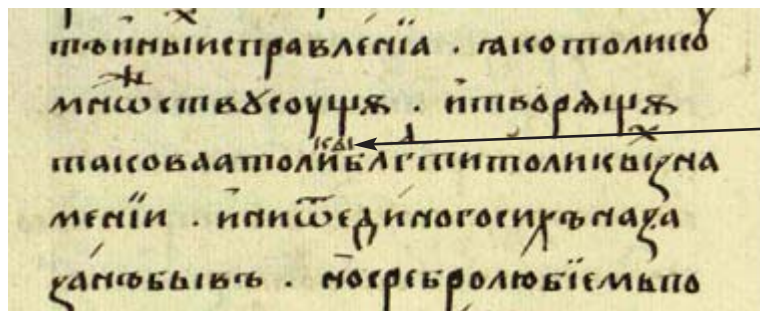 тъиныⷯисправленїа . ꙗкотолико
мнѡⷤствꙋсоущѫ . и҆творѧщѫ
таковаатоликыблгⷣтитоликыⷯꙁна
менїи . и҆ниѿединогосихънака
ꙁанъбывъ . носребролюбїемьпо